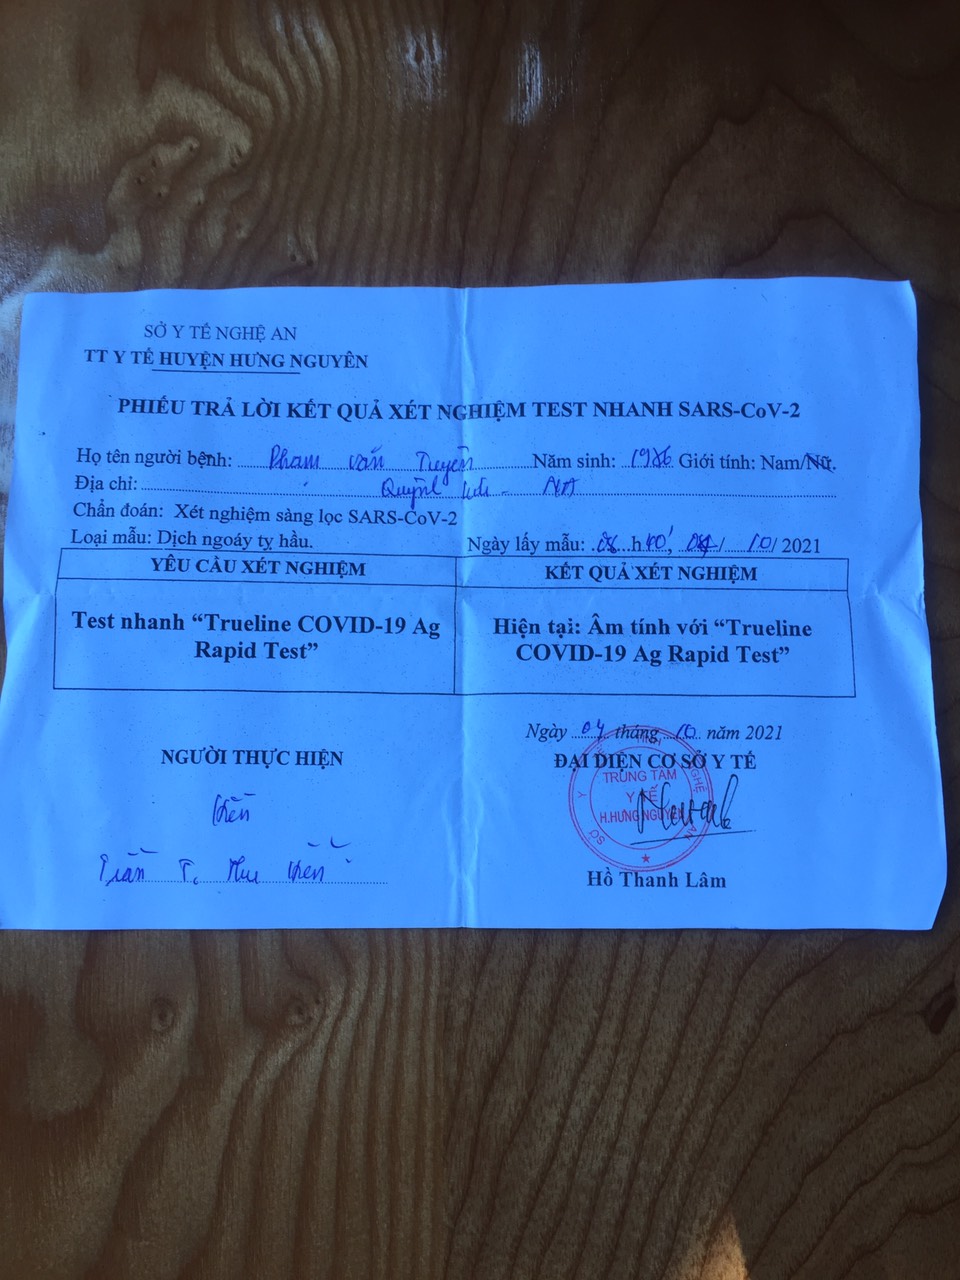 SỞ Y TẾ NGHỆ AN
TT Y TẾ HUYỆN HƯNG NGUYÊN
PHIẾU TRẢ LỜI KẾT QUẢ XÉT NGHIỆM TEST NHANH SARS-CoV-2
Họ tên người bệnh: Phạm Văn Tuyên Năm sinh: 1986 Giới tính: Nam/Nữ.
Địa chỉ: Quỳnh Lưu - NA
Chẩn đoán: Xét nghiệm sàng lọc SARS-CoV-2
Loại mẫu: Dịch ngoáy tỵ hầu.
Ngày lấy mẫu: h 10/ 2021
YÊU CẦU XÉT NGHIỆM
KẾT QUẢ XÉT NGHIỆM
Test nhanh “Trueline COVID-19 Ag
Rapid Test”
Hiện tại: Âm tính với “Trueline
COVID-19 Ag Rapid Test”
Ngày 04 tháng 10 năm 2021
NGƯỜI THỰC HIỆN
ĐẠI DIỆN CƠ SỞ Y TẾ
TRUNG TÂM
Y TẾ
H.HƯNG NGUYÊN
Trần T. Thu
Hồ Thanh Lâm